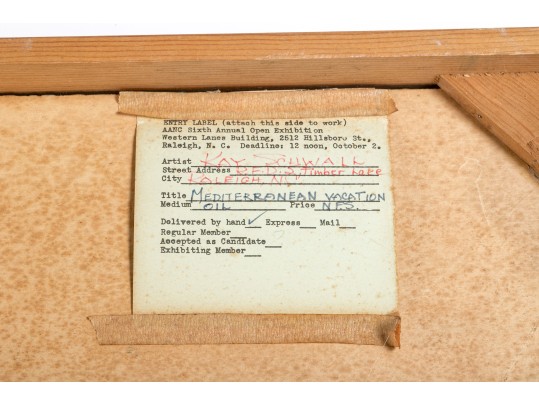 ENTRY LABEL (attach this side to work)
AANC Sixth Annual Open Exhibition
Western Lanes Building, 2612 Hillsboro St.,
Raleigh, N. C. Deadline: 12 noon, October 2.
Artist KAY SCHWALL
Street Address Timber Lake
City RALEIGH, NC
Title MEDITERRANEAN VACATION
Medium OIL Price NFS.
Delivered by hand ✓ Express Mail
Regular Member
Accepted as Candidate
Exhibiting Member